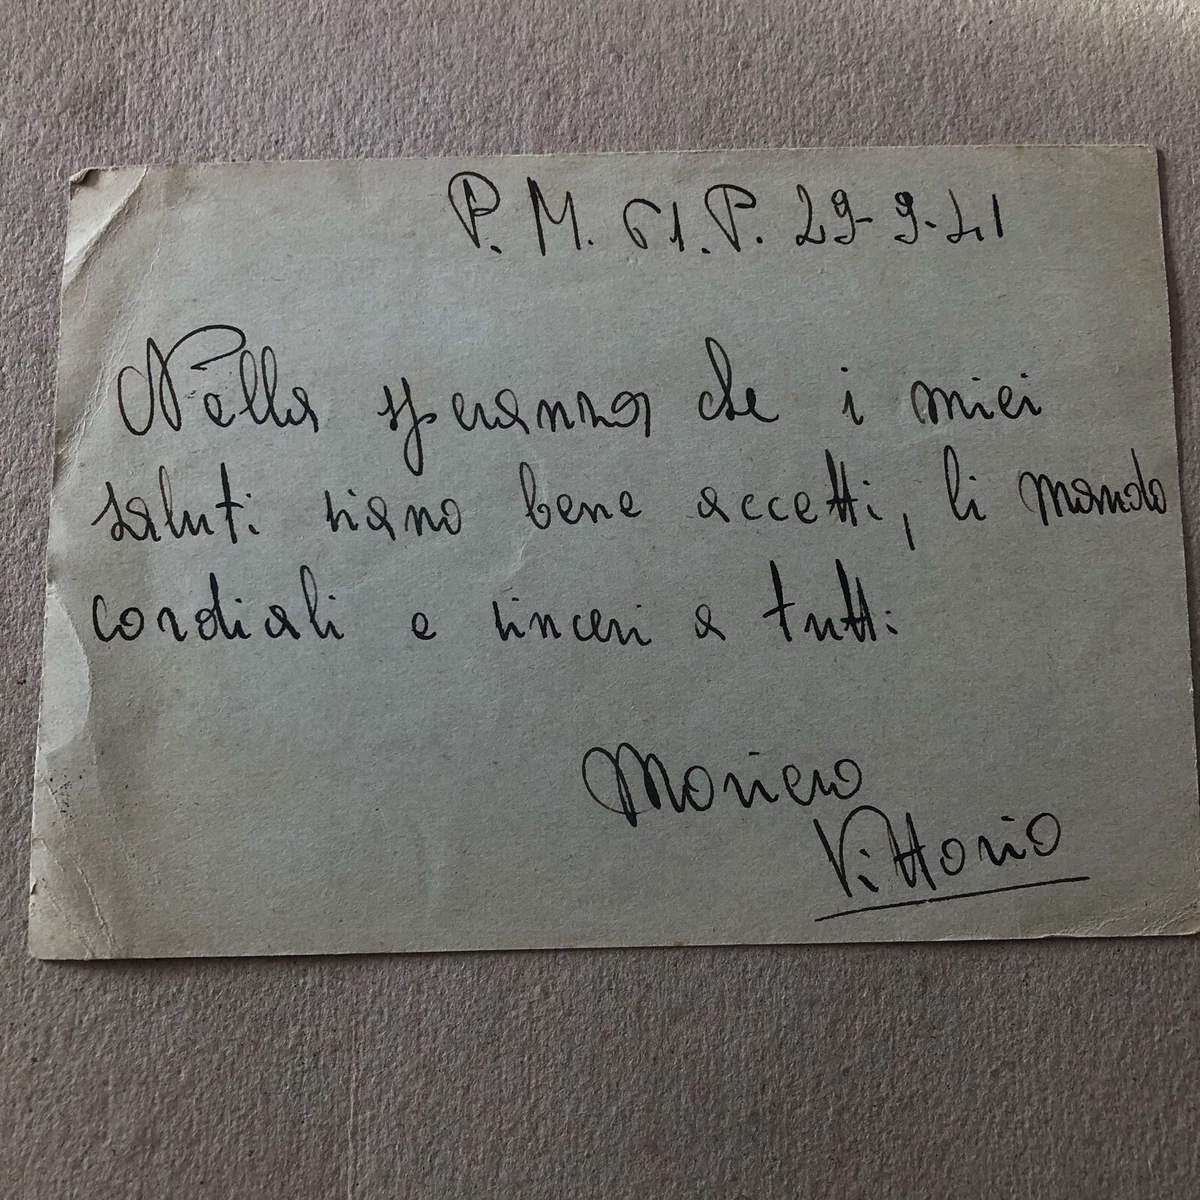 P. M. 61. P. 29-9-41
Nella speranza che i miei
saluti siano bene accetti, li mando
cordiali e sinceri a tutti.
Moriero
Vittorio